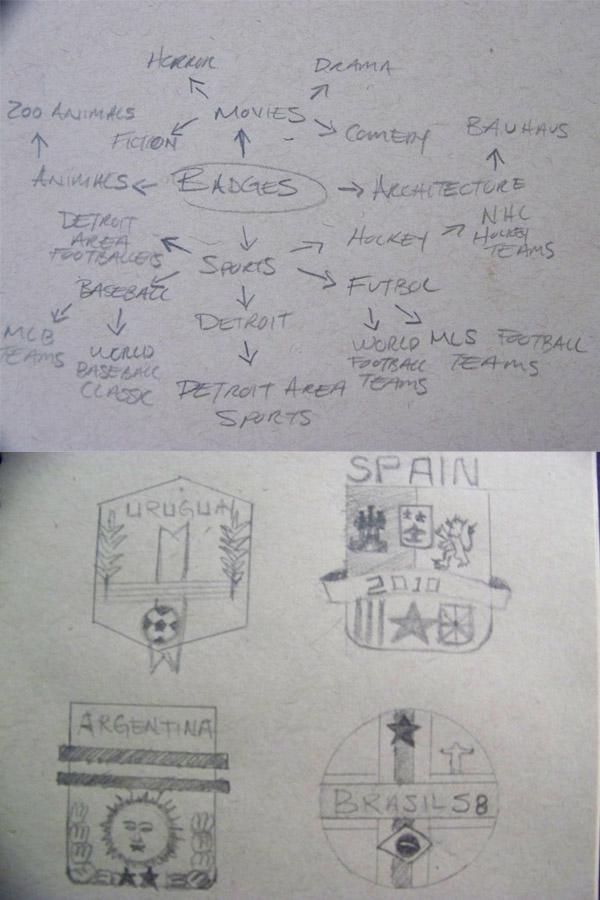 HORROR
DRAMA
ZOO ANIMALS
MOVIES
FICTION
COMEDY
BAUHAUS
ANIMALS
BADGES
ARCHITECTURE
DETROIT
AREA
FOOTBALLERS
HOCKEY
NHL
HOCKEY
TEAMS
SPORTS
BASEBALL
FUTBOL
DETROIT
MLB
TEAMS
WORLD
BASEBALL
CLASSIC
WORLD
FOOTBALL
TEAMS
MLS FOOTBALL
TEAMS
DETROIT AREA
SPORTS
URUGUAY
SPAIN
2010
ARGENTINA
BRASIL 58